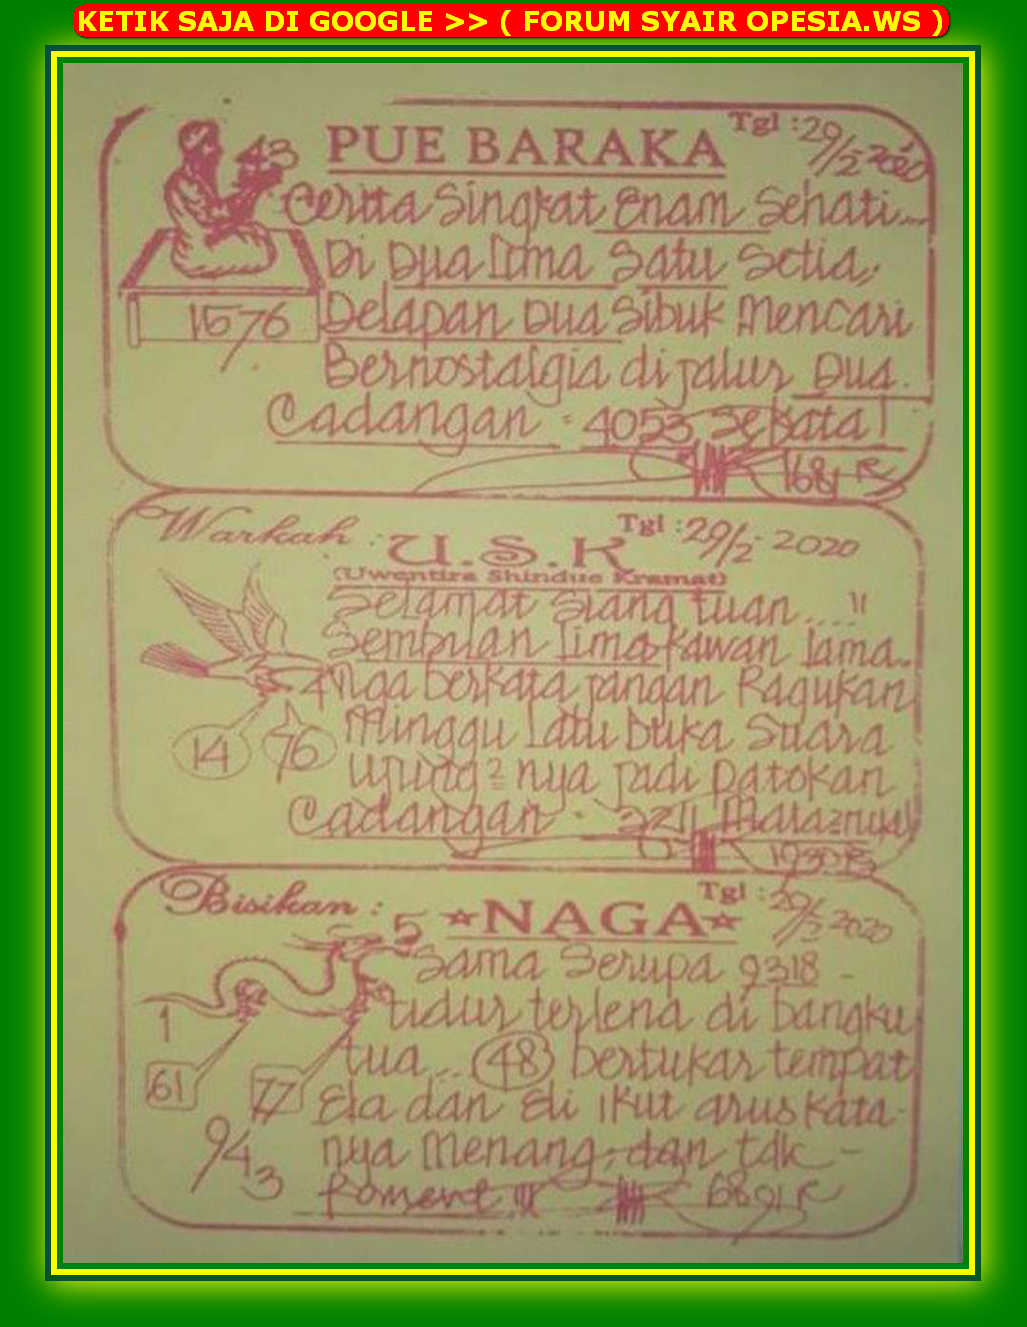 KETIK SAJA DI GOOGLE >> ( FORUM SYAIR OPESIA.WS )
PUE BARAKA
Tgl : 29/2 2020
43
Cerita Singkat Enam Sehati...
Di Dua Lima Satu Setia,
1576
Delapan Dua Sibuk Mencari
Bernostalgia di jalur Dua.
Cadangan = 4053 Sekata!
1681 R
Warkah :
U.S.K
Tgl : 29/2 2020
(Uwentira Shindue Kramat)
Selamat Siang tuan....!!
Sembilan Lima kawan lama..
4
Nga berkata jangan Ragukan
14
76
Minggu Lalu buka Suara
Ujung2 nya jadi patokan
Cadangan - 2211
1930 R
Bisikan :
NAGA
Tgl : 29/2 2020
5
Sama Serupa 9318 -
1
tidur terlena di bangku
tua... 48 bertukar tempat
61
77
Ela dan Eli ikut arus kata-
943
nya Menang, dan tdk -
koment !!!
6891 R